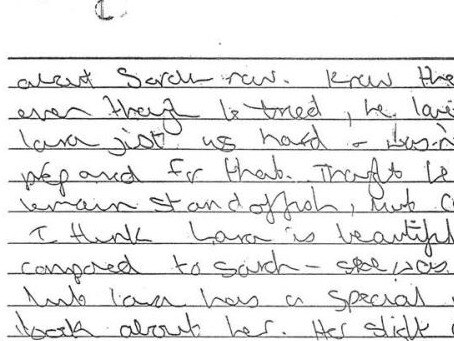 about Sarah now. Knew the
even though he tried, he love
Lara just as hard - wasn't
prepared for that. Thought he
remain standoffish, but
I think Lara is beautiful
compared to Sarah - she was
but Lara has a special
look about her. Her slight